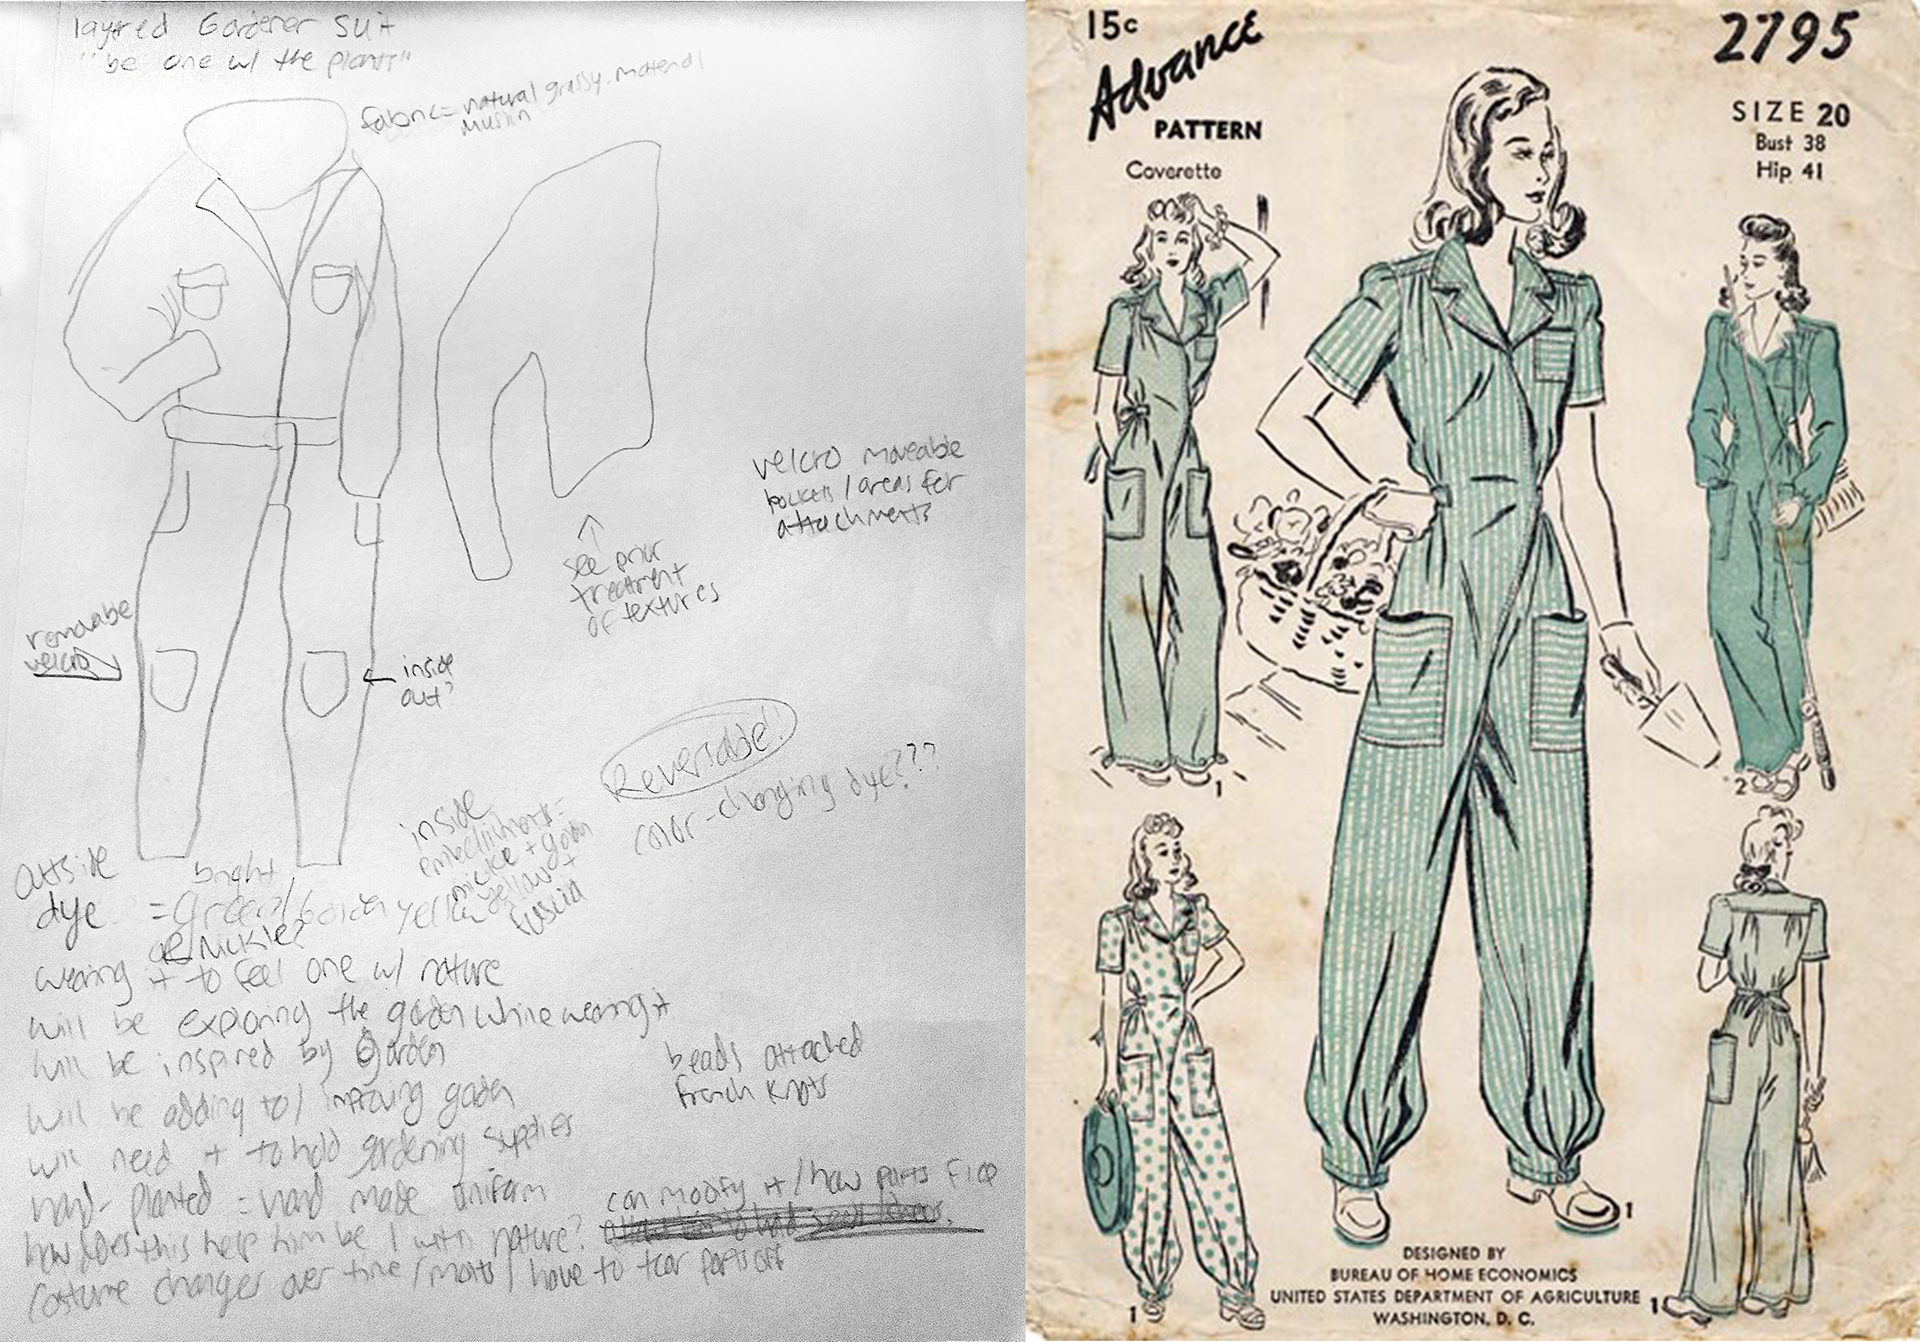 layered Gardener Suit
"be one w/ the plants"
fabric = natural grassy material
muslin
velcro moveable
pockets / areas for
attachments
see prior
treatment
of textures
removable
velcro
inside
out?
Reversable!
color-changing dye???
inside
nickle + golden
yellow +
fuscia
outside
dye
bright
= green / golden yellow
or Nickle?
wearing it to feel one w/ nature
will be exploring the garden while wearing it
will be inspired by Garden
will be adding to / improving garden
will need it to hold gardening supplies
hand-planted = hand made uniform
how does this help him be 1 with nature?
Costume changes over time / molts / have to tear parts off
beads attached
french knots
can modify it / how parts
15c
Advance
PATTERN
Coverette
2795
SIZE 20
Bust 38
Hip 41
1
2
1
1
1
DESIGNED BY
BUREAU OF HOME ECONOMICS
UNITED STATES DEPARTMENT OF AGRICULTURE
WASHINGTON, D. C.